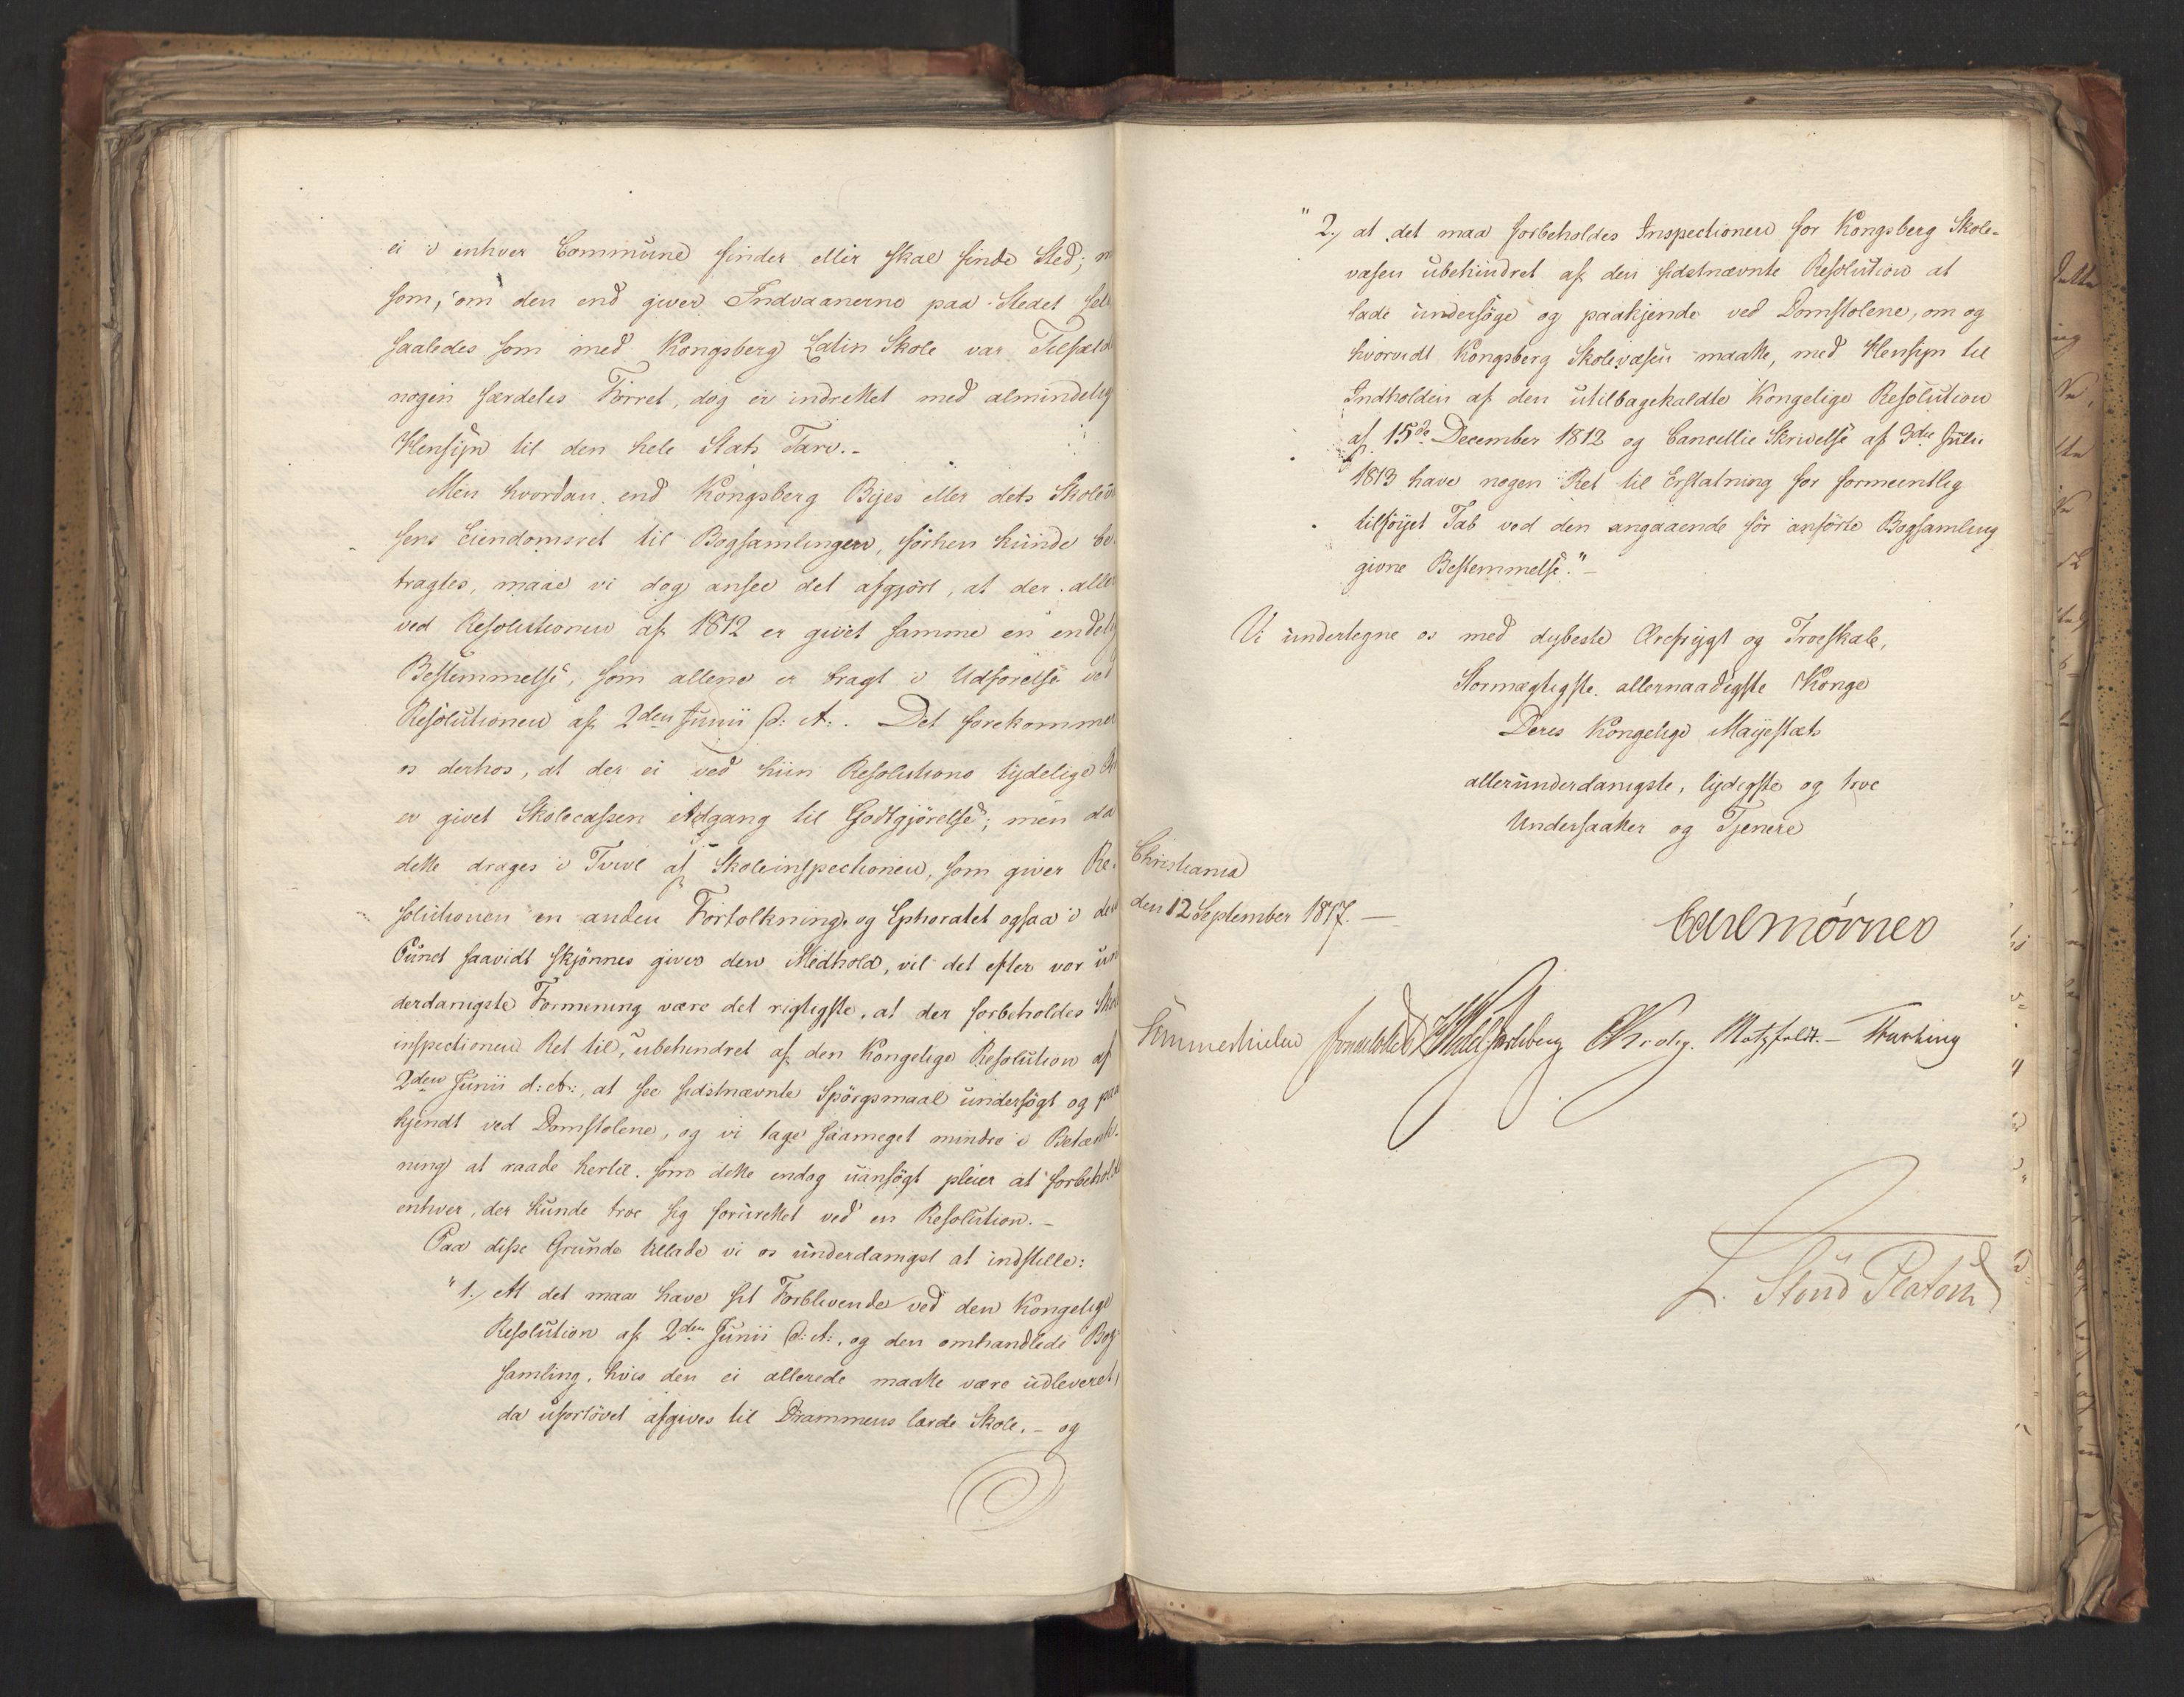 ei i enhver Commune finder eller skal finde Sted;
som, om den end giver Indvaanerne paa Stedet
saaledes som med Kongsberg Latin Skole var Tilfæld
nogen særdeles Forret, dog er indrettet med almindelig
Hensyn til den hele Stats Tarv.-
Men hvordan end Kongsberg Byes eller dets Skolev
sens Eiendomsret til Bogsamlingen, förhen kunde be-
tragtes, maae vi dog ansee det afgjört, at der alle
ved Resolutionen af 1812 er givet samme en endelig
Bestemmelse, som allene er bragt i Udförelse ved
Resolutionen af 2den Junii d: A:. Det forekommer
os derhos, at der ei ved hiin Resolutions tydelige
er givet Skolecassen Adgang til Godtgjörelse; men da
dette drages i Tvivl af Skoleinspectionen, som giver Re-
solutionen en anden Fortolkning, og Ephoratet ogsaa i det
Punct saavidt skjönnes giver den Medhold, vil det efter vor un
derdanigste Formening være det rigtigste, at der forbeholdes Skole
inspectionen Ret til, ubehindret af den Kongelige Resolution af
2den Junii d: A:, at see sidstnævnte Spörgsmaal undersögt og paa
kjendt ved Domstolene, og vi tage saameget mindre i Betænk-
ning at raade hertil, som dette endog uansögt pleier at forbeholdes
enhver, der kunde troe sig forurettet ved en Resolution.-
Paa disse Grunde tillade vi os underdanigst at indstille:
"1./ At det maa have sit Forblivende ved den Kongelige
Resolution af 2den Junii d: A:, og den omhandlede Bog-
samling, hvis den ei allerede maatte være udleveret,
da ufortövet afgives til Drammens lærde Skole.- og
"2./ at det maa forbeholdes Inspectionen for Kongsberg Skole-
væsen ubehindret af den sidstnævnte Resolution at
lade undersöge og paakjende ved Domstolene, om og
hvorvidt Kongsberg Skolevæsen maatte, med Hensyn til
Indholden af den utilbagekaldte Kongelige Resolution
af 15de December 1812 og Cancellie Skrivelse af 3die Julii
1813 have nogen Ret til Erstatning for formeentlig
tilföiet Tab ved den angaaende för anförte Bogsamling
givne Bestemmelse."-
Vi undertegne os med dybeste Ærefrygt og Troeskab,
Stormægtigste allernaadigste Konge
Deres Kongelige Mayestæts
allerunderdanigste, lydigste og troe
Undersaatter og Tjenere
Christiania
den 12 September 1817.-
Carl Mörner
Sommerhielm Krog. Motzfeldt.-
L. Stoud Platou